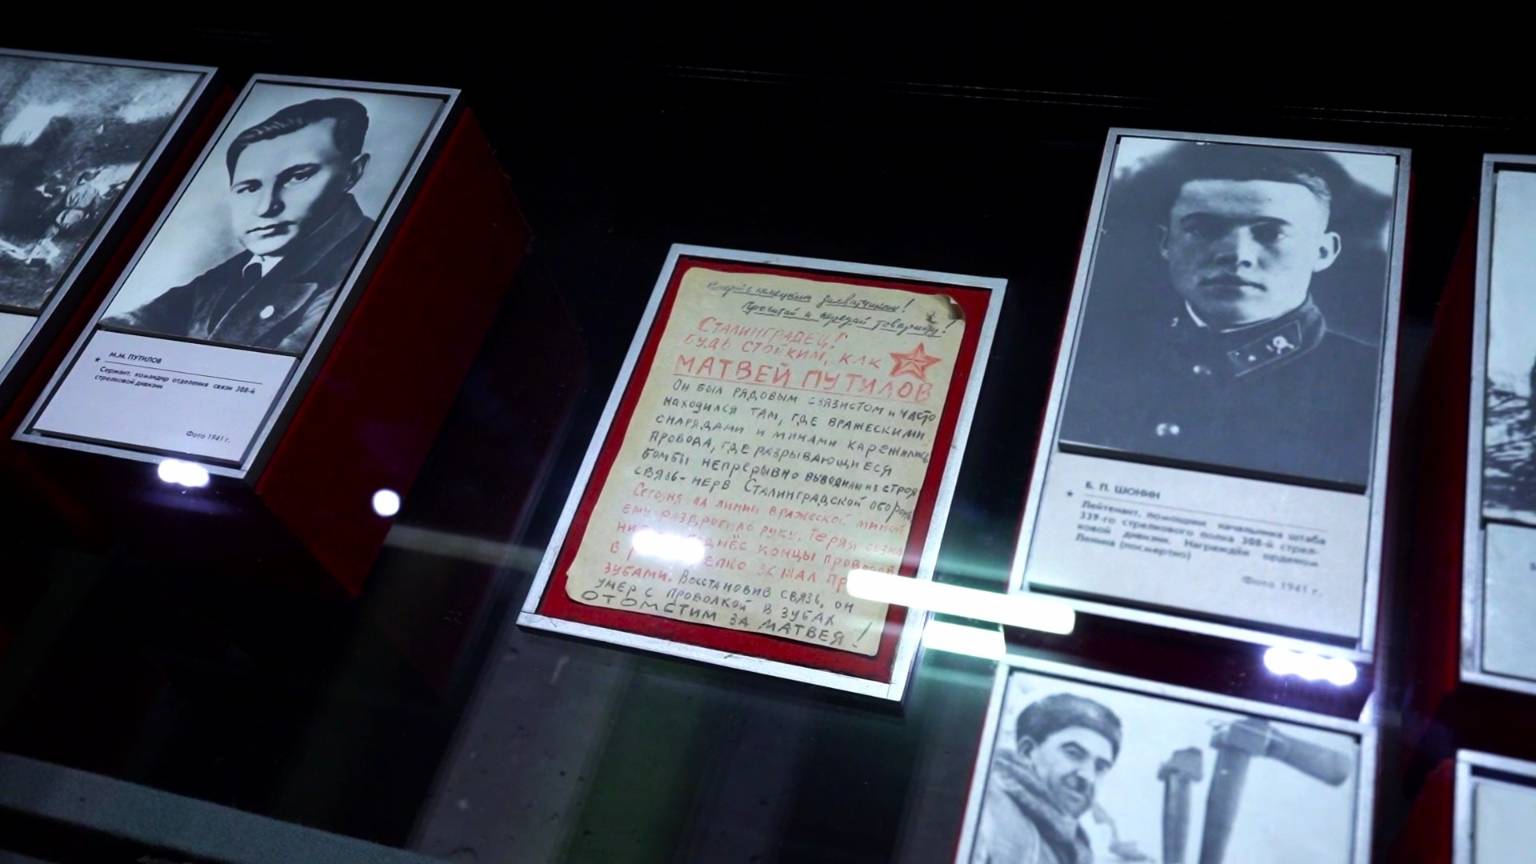 М.М. ПУТИЛОВ
Сержант, командир отделения связи 308-й
стрелковой дивизии
Фото 1941 г.
Прочитай и передай товарищу!
СТАЛИНГРАДЕЦ!
БУДЬ СТОЙКИМ, КАК
МАТВЕЙ ПУТИЛОВ
Он был рядовым связистом и часто
находился там, где вражескими
снарядами и минами карежились
провода, где разрывающиеся
бомбы непрерывно выводили из строя
связь-нерв Сталинградской обороны
Сегодня на линии вражеской миной
ему раздробило руку. Теряя
концы проводов
зажал
зубами. Восстановив связь, он
умер с проволкой в зубах
ОТОМСТИМ ЗА МАТВЕЯ!
Б. П. ШОНИН
Лейтенант, помощник начальника штаба
339-го стрелкового полка 308-й стрел-
ковой дивизии. Награждён орденом
Ленина (посмертно)
Фото 1941 г.